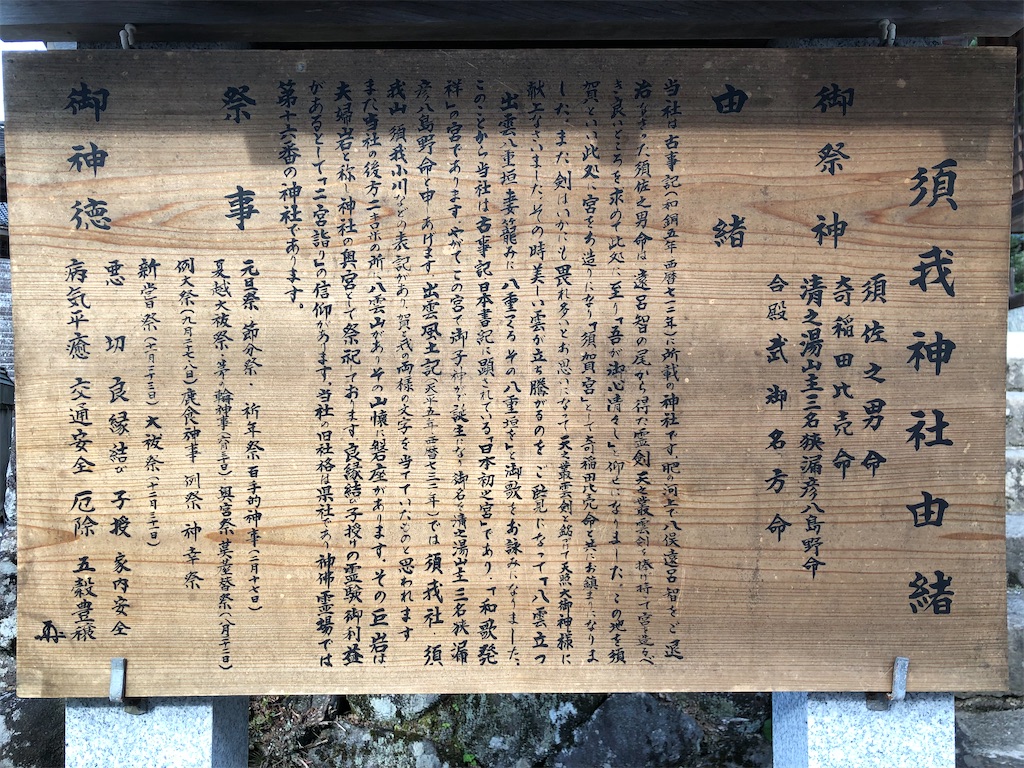 須我神社由緒
御祭神
須佐之男命
奇稲田比売命
清之湯山主三名狭漏彦八島野命
合殿 武御名方命
由緒
当社は古事記(和銅五年 西暦七一二年)に所載の神社です。肥の河上で八俣遠呂智をご退
治なさった須佐之男命は、遠呂智の尾から得た霊剣天之叢雲剣を捧げ持って宮を造るべ
き良いところを求めて此処に至り「吾が御心清々し」と仰せになりました。この地を須
賀といい此処に宮をお造りになり「須賀宮」として奇稲田比売命と共にお鎮まりになりま
した。また、剣はいかにも畏れ多いとお思いになって天之叢雲剣と銘して天照大御神様に
献上なさいました。その時美しい雲が立ち騰がるのをご覧になって「八雲立つ
出雲八重垣 妻籠みに 八重つくる その八重垣を」と御歌をお詠みになりました。
このことから当社は古事記日本書記に顕されている「日本初之宮」であり、「和歌発
祥」の宮であります。やがてこの宮で御子神がご誕生になり御名を清之湯山主三名狭漏
彦八島野命と申しあげます。出雲風土記(天平五年 西暦七三三年)では 須我社・須
我山 須我小川などの表記があり、賀と我の両様の文字を当てていたものと思われます
また当社の後方二粁の所に八雲山がありその山懐に磐座があります。その巨岩は
夫婦岩と称し神社の奥宮として祭祀しております。良縁結び子授けの霊験御利益
があるとして「二宮詣り」の信仰があります。当社の旧社格は県社であり神佛霊場では
第十六番の神社であります。
祭事
元旦祭 節分祭・祈年祭 百手的神事(二月十七日)
夏越大祓祭・茅の輪神事(六月三十日) 奥宮祭
例大祭(九月二十八日)鹿食神事 例祭 神幸祭
新嘗祭(十月二十三日)大祓祭(十二月三十一日)
御神徳
悪切 良縁結び 子授 家内安全
病気平癒 交通安全 厄除 五穀豊穣